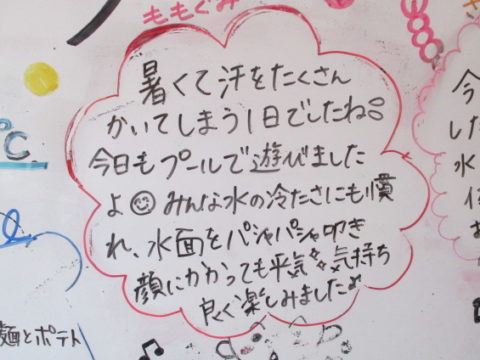 ももぐみ
暑くて汗をたくさん
かいてしまう1日でしたね。
今日もプールで遊びました
よ☺みんな水の冷たさにも慣
れ、水面をパシャパシャ叩き
顔にかかっても平気✧気持ち
良く楽しみました♪
℃
麺とポテト
♪
今
した
水